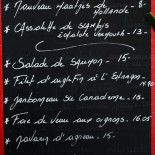 * Nouveau Maatjes de
Hollande - 8.-
* Assiette de scampis
échalote Vermouth - 13.-
* Salade de Surgon - 15.-
* Filet d'anglefin à l'
19.90
* Jambonneau Canadienne - 15.-
* Foie de veau aux oignons - 16.05
* Navarin d'agneau - 15.-